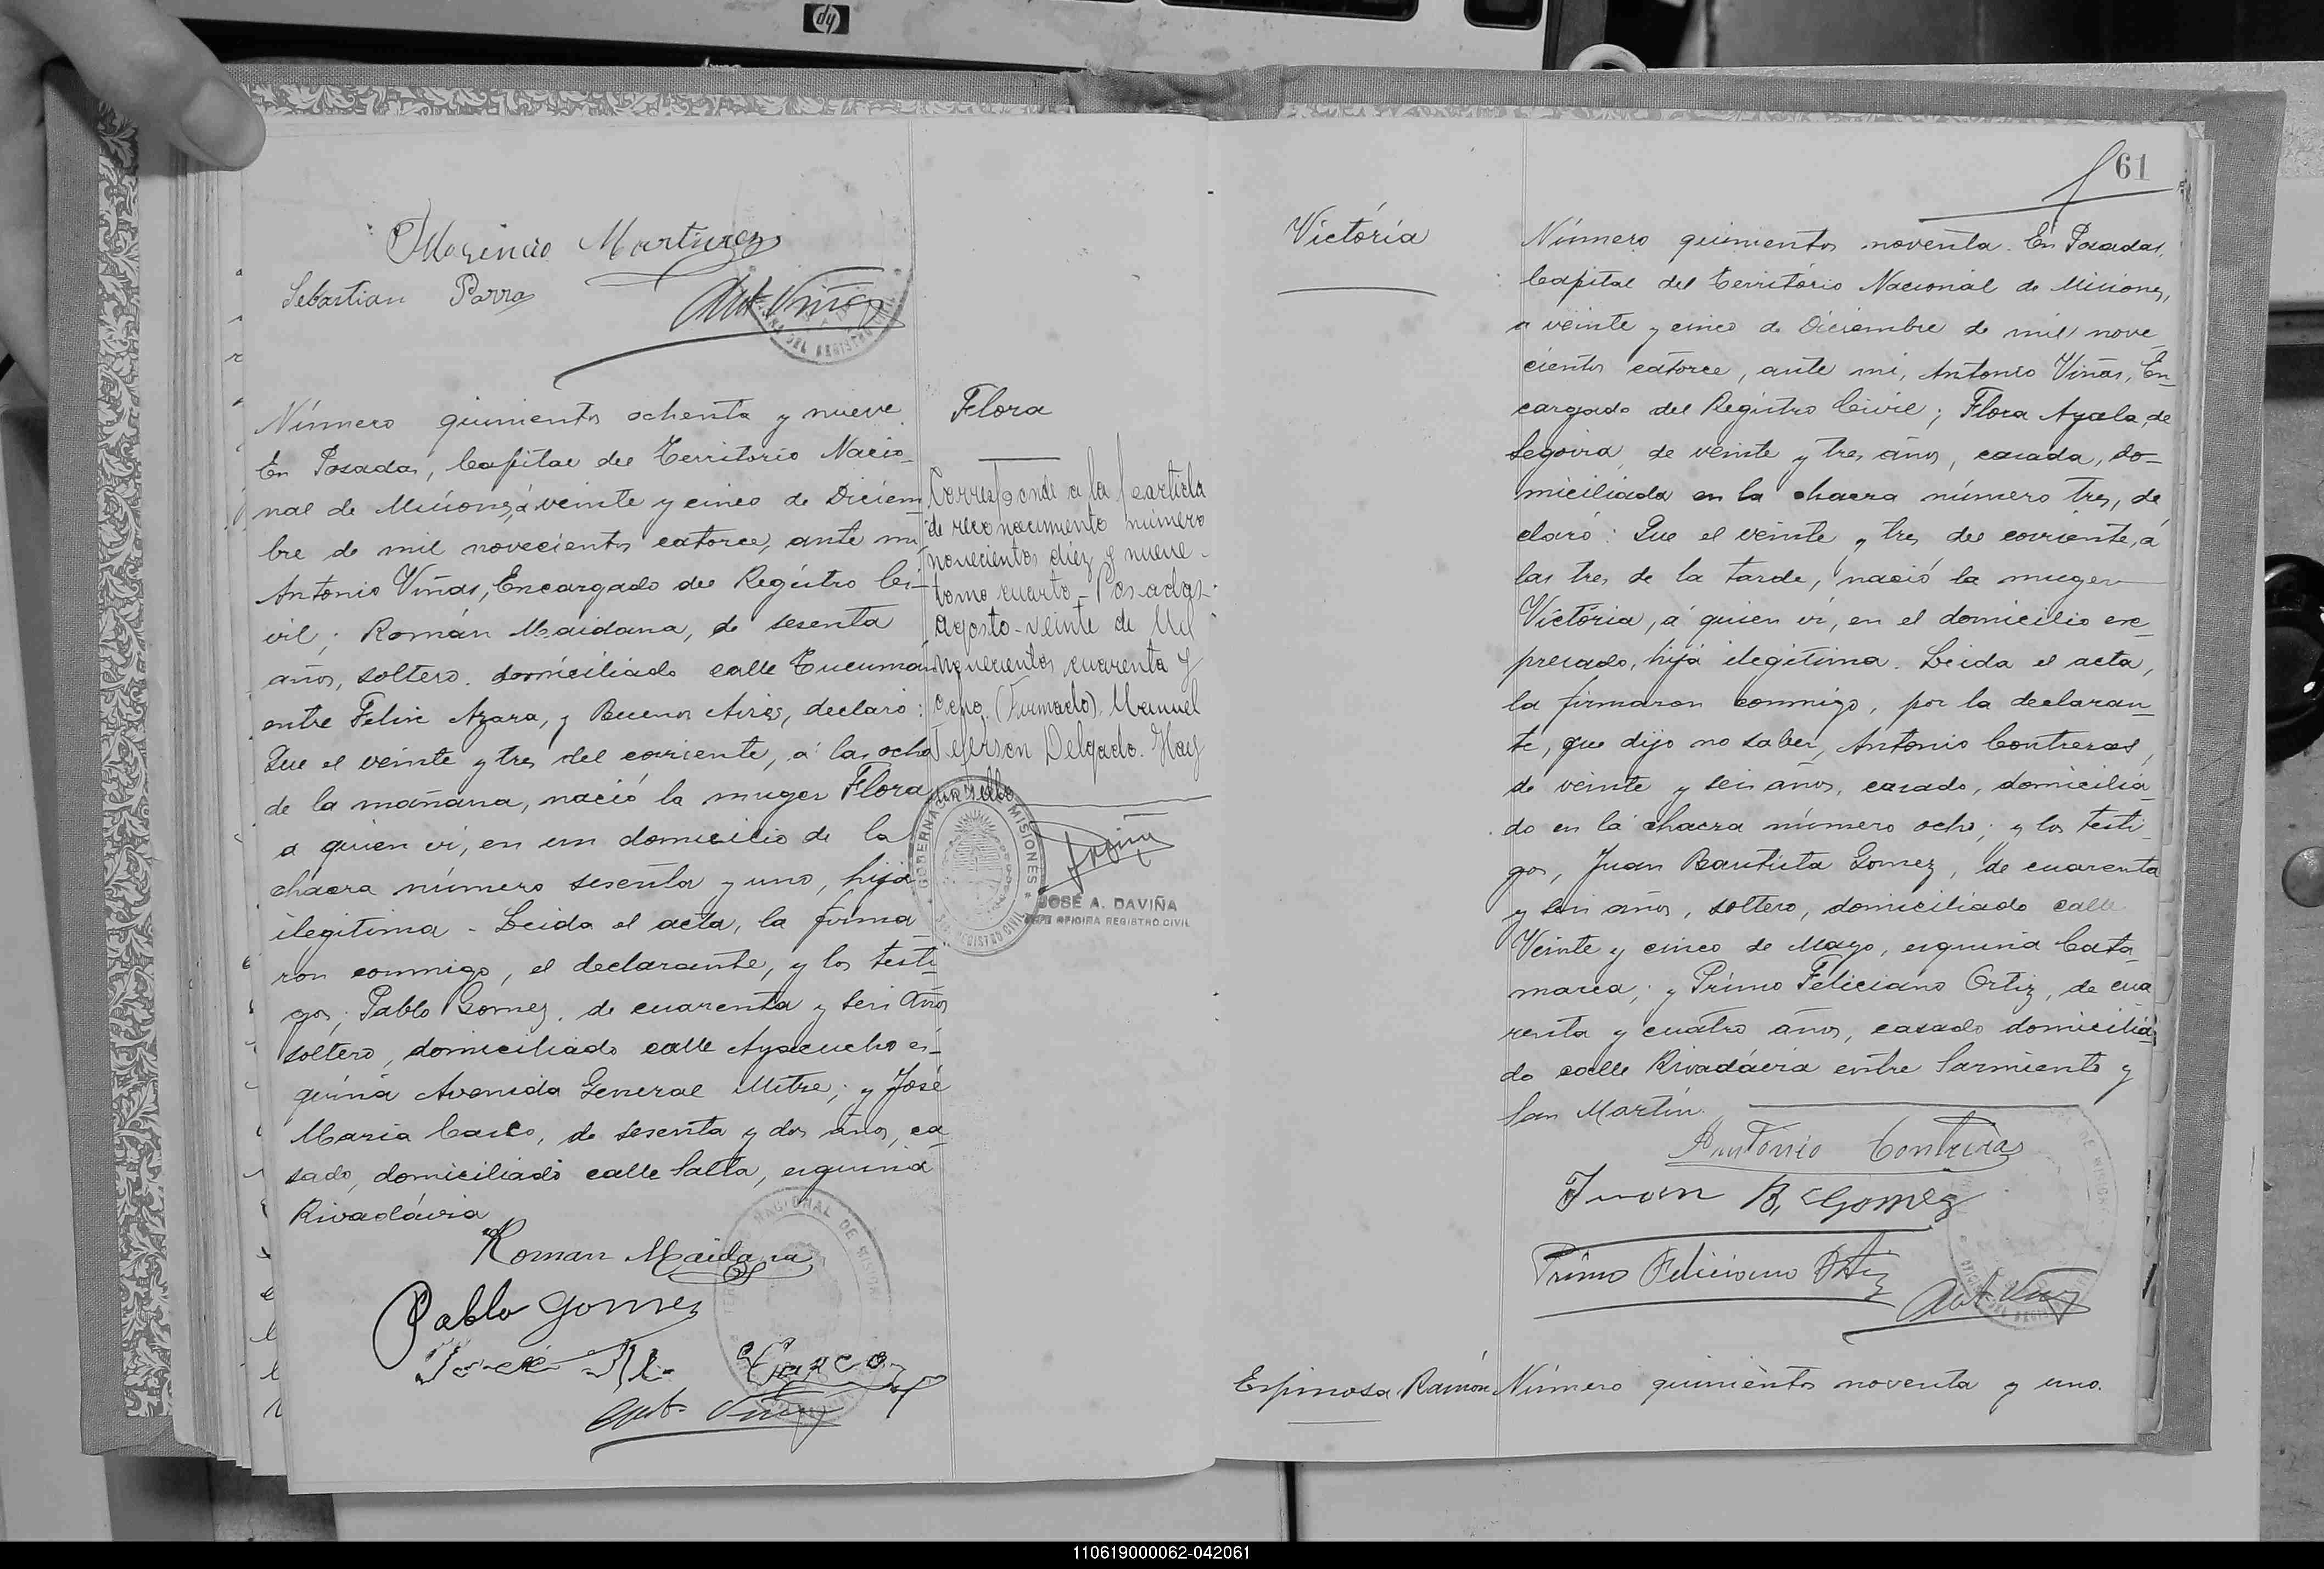 hp
Maximcio Martinez
Sebastian Parra
Ant Viñas
Número quinientos ochenta y nueve.
En Posadas, Capital del Territorio Nacio-
nal de Misiones, á veinte y cinco de Diciem
bre de mil novecientos catorce, ante mi,
Antonio Viñas, Encargado del Registro Ci-
vil; Román Maidana, de sesenta
años, soltero, domiciliado calle Tucuman
entre Felix Azara, y Buenos Aires, declaró:
Que el veinte y tres del corriente, á las ocho
de la mañana, nació la muger Flora
a quien ví, en un domicilio de la
chacra número sesenta y uno, hija
ilegitima - Leida el acta, la firma-
ron conmigo, el declarante, y los testi-
gos, Pablo Gómez, de cuarenta y seis años
soltero, domiciliado calle Ayacucho es-
quina Avenida General Mitre; y José
Maria Casco, de sesenta y dos años, ca-
sado, domiciliado calle Salta, esquina
Rivadávia
Roman Maidana
Pablo Gomez
José M. Casco
Ant. Viñas
Flora
Corresponde a la partida
de reconocimiento número
novecientos diez y nueve-
tomo cuarto - Posadas-
agosto-veinte de Mil
novecientos cuarenta y
ocho. (Firmado). Manuel
Jeferson Delgado. Hay
un sello
GOBERNACION MISIONES
REGISTRO CIVIL
JOSÉ A. DAVIÑA
JEFE OFICINA REGISTRO CIVIL
NACIONAL DE MISIONES
61
Victória
Número quinientos noventa. En Posadas,
Capital del Território Nacional de Misiones,
a veinte y cinco de Diciembre de mil nove-
cientos catorce, ante mi, Antonio Viñas, En-
cargado del Registro Civil; Flora Ayala, de
Segovia, de veinte y tres años, casada, do-
miciliada en la chacra número tres, de
claró: Que el veinte y tres del corriente, á
las tres de la tarde, nació la muger
Victória, á quien ví, en el domicilio ex-
presado, hija ilegitima. Leida el acta,
la firmaron conmigo, por la declaran-
te, que dijo no saber, Antonio Contreras,
de veinte y seis años, casado, domicilia-
do en la chacra número ocho; y los testi-
gos, Juan Bautista Gomez, de cuarenta
y seis años, soltero, domiciliado calle
Veinte y cinco de Mayo, esquina Cata-
marca; y Primo Feliciano Ortiz, de cua
renta y cuatro años, casado domicilia-
do calle Rivadávia entre Sarmiento y
San Martín.
Antonio Contreras
Juan B. Gomez
Primo Feliciano Ortiz
Ant Viñas
Espinosa Ramón
Número quinientos noventa y uno.
110619000062-042061